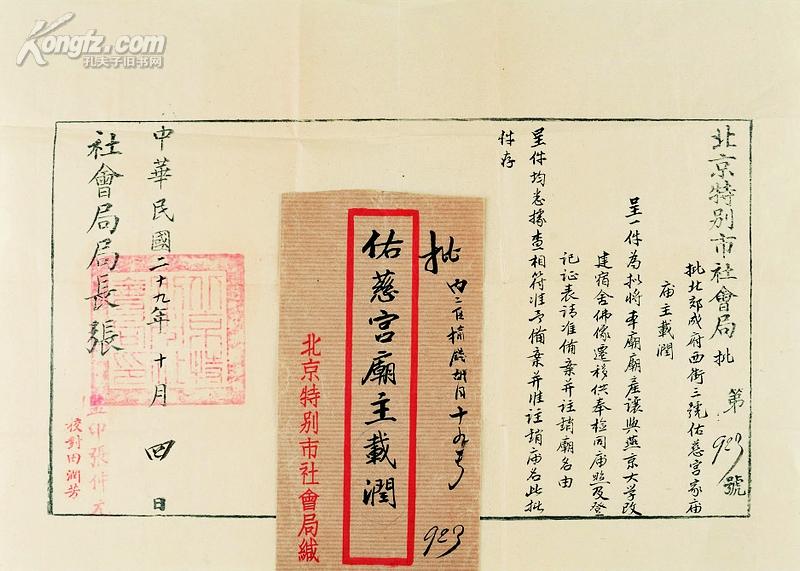 Kongfz.com
孔夫子旧书网
北京特别市社會局批 第923號
批北郊成府西街三號佑慈宮家庙
庙主載潤
呈一件為擬將本廟廟產讓與燕京大学改
建宿舍佛像遷移供奉檢同庙照及登
記证表請准備案并註銷廟名由
呈件均悉據查相符准予備案并准註銷庙名此批
件存
中華民國二十九年十月四日
社會局局長張
監印張仲
校對田潤芳
批
佑慈宮廟主載潤
十九号
923
北京特别市社會局緘